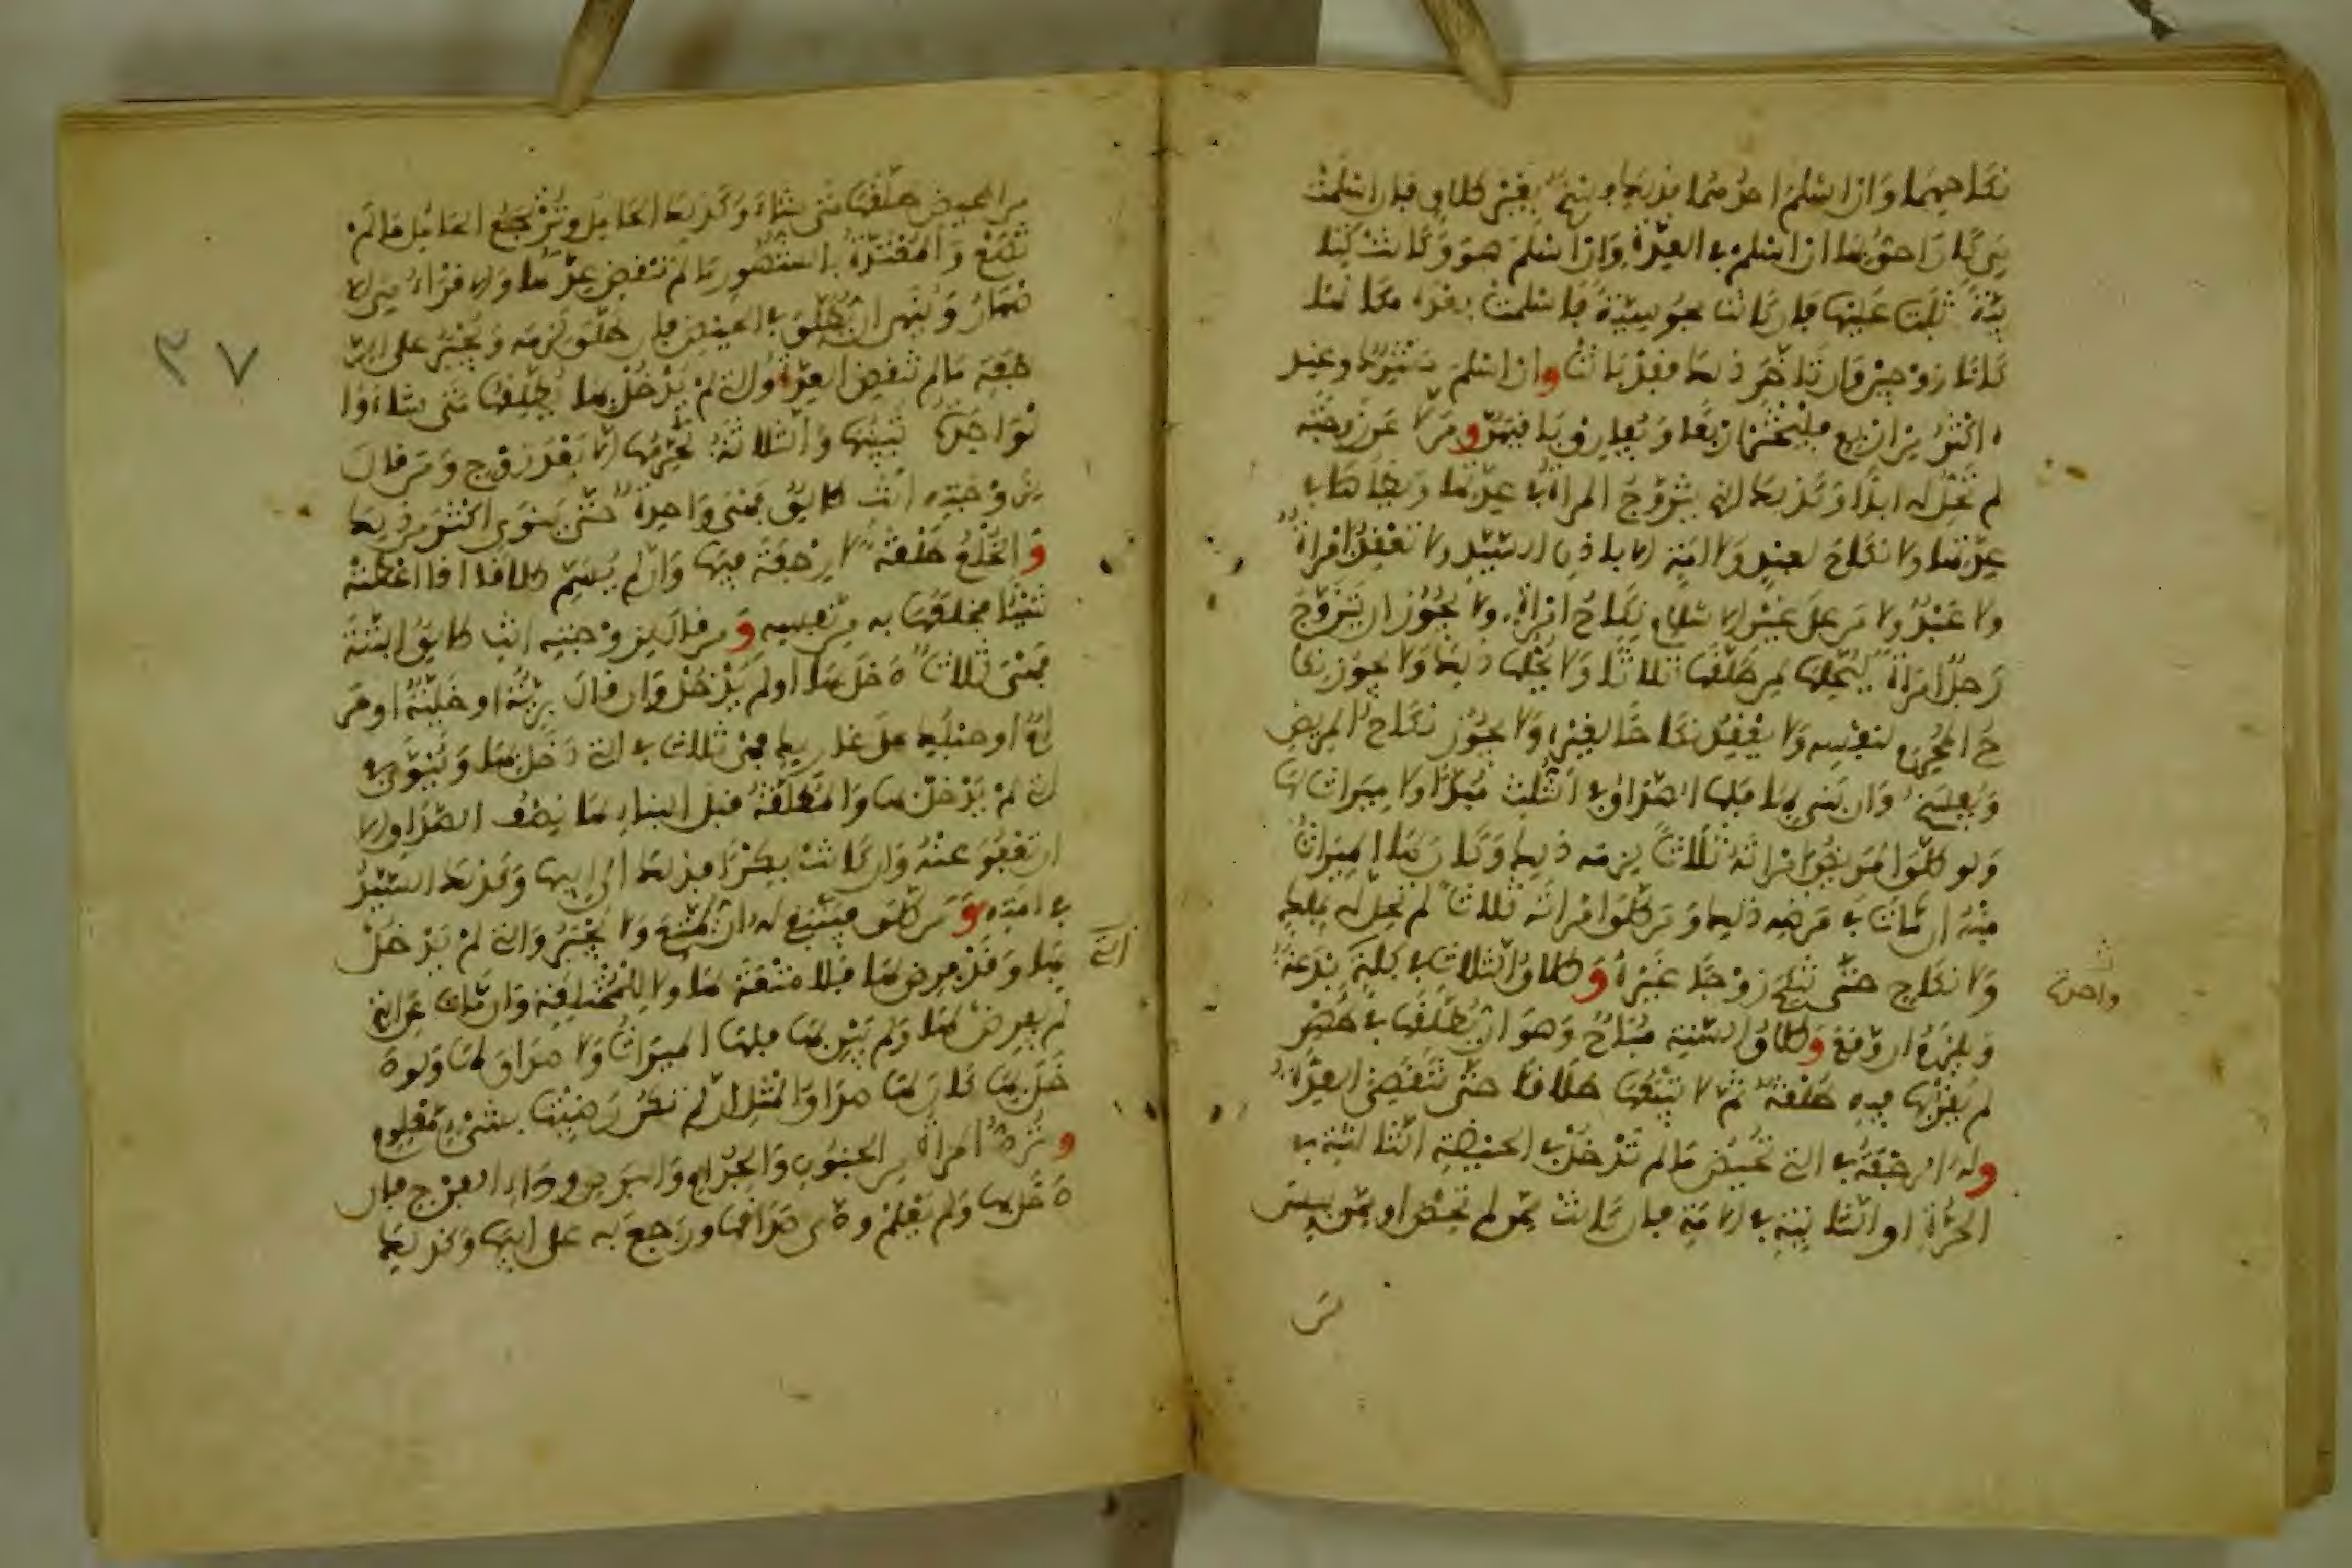 نكاحهما وان اسلم احدهما فذلك فسخ بغير طلاق فان اسلمت
هي كان احق بها ان اسلم في العدة وان اسلم هو وكانت كتا
بية ثبت عليها فان كانت مجوسية فاسلمت بعده مكانها
كانا زوجين وان تاخر ذلك فقد بانت وان اسلم مشرك وعند
ه اكثر من اربع فليختر اربعا ويفارق باقيهن ومن لاعن زوجته
لم تحل له ابدا وكذلك الذي يتزوج المراة في عدتها ويطاها في
عدتها ولا نكاح لعبد ولا امة الا باذن السيد ولا تعقد امراة
ولا عبد ولا من على غير الاسلام نكاح امراة ولا يجوز ان يتزوج
رجل امراة ليحلها لمن طلقها ثلاثا ولا يحلها ذلك ولا يجوز نكا
ح المحرم لنفسه ولا يعقد نكاحا لغيره ولا يجوز نكاح المريض
ويفسخ وان بنى بها فلها الصداق في الثلث مبدأ ولا ميراث لها
ولو طلق المريض امراته ثلاثا لزمه ذلك وكان لها الميراث
منه ان مات في مرضه ذلك ومن طلق امراته ثلاثا لم تحل له بملك
ولا نكاح حتى تنكح زوجا غيره وطلاق الثلاث في كلمة بدعة
واحدة
ويلزمه ان وقع وطلاق السنة مباح وهو ان يطلقها في طهر
لم يقربها فيه طلقة ثم لا يتبعها طلاقا حتى تنقضي العدة
وله الرجعة في التي تحيض ما لم تدخل في الحيضة الثالثة في
الحرة او الثانية في الامة فان كانت ممن لم تحض او ممن يئست
من المحيض طلقها متى شاء وكذلك الحامل وترتجع الحامل ما لم
تضع والمعتدة بالشهور ما لم تنقض عدتها والاقراء هي الا
طهار وينهى ان يطلق في الحيض فان طلق لزمه ويجبر على الر
جعة ما لم تنقض العدة والتي لم يدخل بها يطلقها متى شاء وا
لواحدة تبينها والثلاثة تحرمها الا بعد زوج ومن قال
لزوجته انت طالق فهي واحدة حتى ينوي اكثر من ذلك
والخلع طلقة لا رجعة فيها وان لم يسم طلاقا اذا اعطته
شيئا فخلعها به من نفسه ومن قال لزوجته انت طالق البتة
فهي ثلاثا دخل بها او لم يدخل وان قال برية او خلية او حر
ام او حبلك على غاربك فهي ثلاث في التي دخل بها وينوى في
التي لم يدخل بها والمطلقة قبل البناء لها نصف الصداق الا
ان تعفو عنه وان كانت بكرا فذلك الى ابيها وكذلك السيد
في امته ومن طلق فينبغي له ان يمتع ولا يجبر والتي لم يدخل
التي
بها وقد فرض لها فلا متعة لها ولا للمختلعة وان مات عن التي
لم يفرض لها ولم يبن بها فلها الميراث ولا صداق لها ولو د
خل بها كان لها صداق المثل ان لم تكن رضيت بشيء معلوم
وترد المراة من الجنون والجذام والبرص وداء الفرج فان
دخل بها ولم يعلم ودى صداقها ورجع به على ابيها وكذلك
من
٣٧